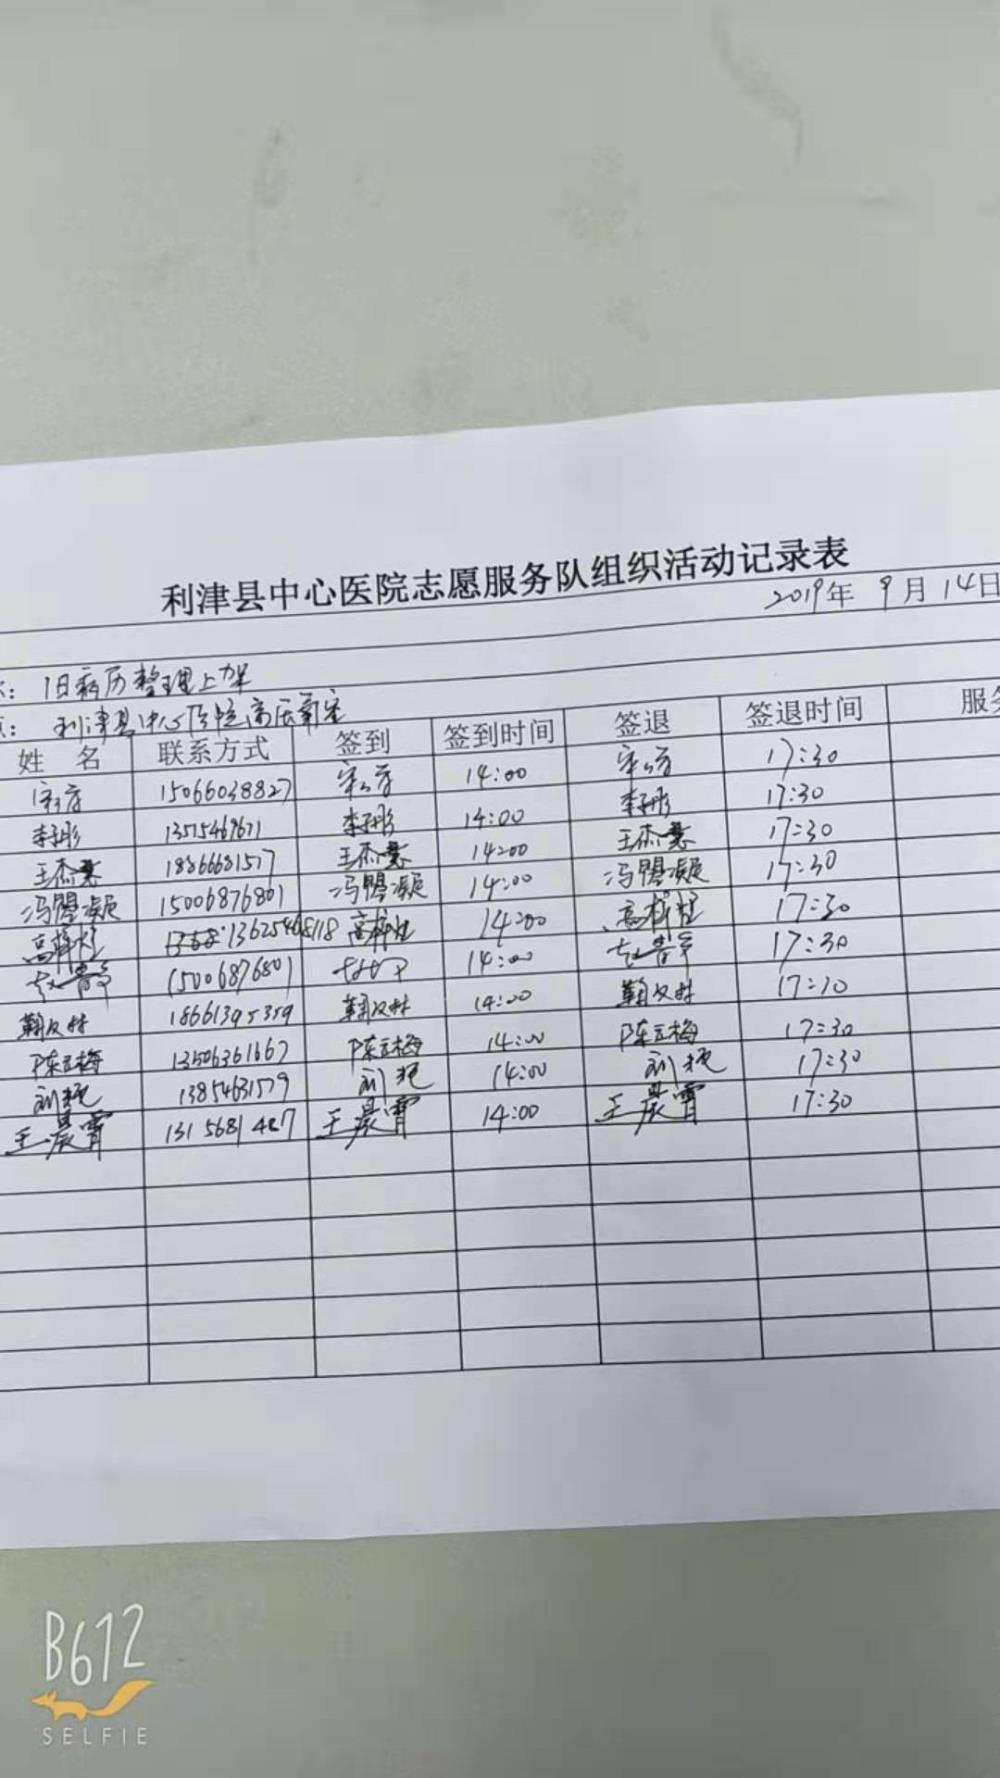 利津县中心医院志愿服务队组织活动记录表
2019年 9月 14日
: 旧病历整理上架
: 利津县中心医院高压氧室
姓 名 联系方式 签到 签到时间 签退 签退时间 服务
15066038827 14:00 17:30
李彤 李彤 14:00 李彤 17:30
王杰慧 18866681577 王杰慧 14:00 王杰慧 17:30
冯 凝 15006876801 冯 凝 14:00 冯 凝 17:30
高梓煜 13625468118 高梓煜 14:00 高梓煜 17:30
15006876801 14:00 17:30
18661395359 14:00 17:30
陈立梅 13506361667 陈立梅 14:00 陈立梅 17:30
刘艳 13854631579 刘艳 14:00 刘艳 17:30
王晨霄 王晨霄 14:00 王晨霄 17:30
B612
SELFIE